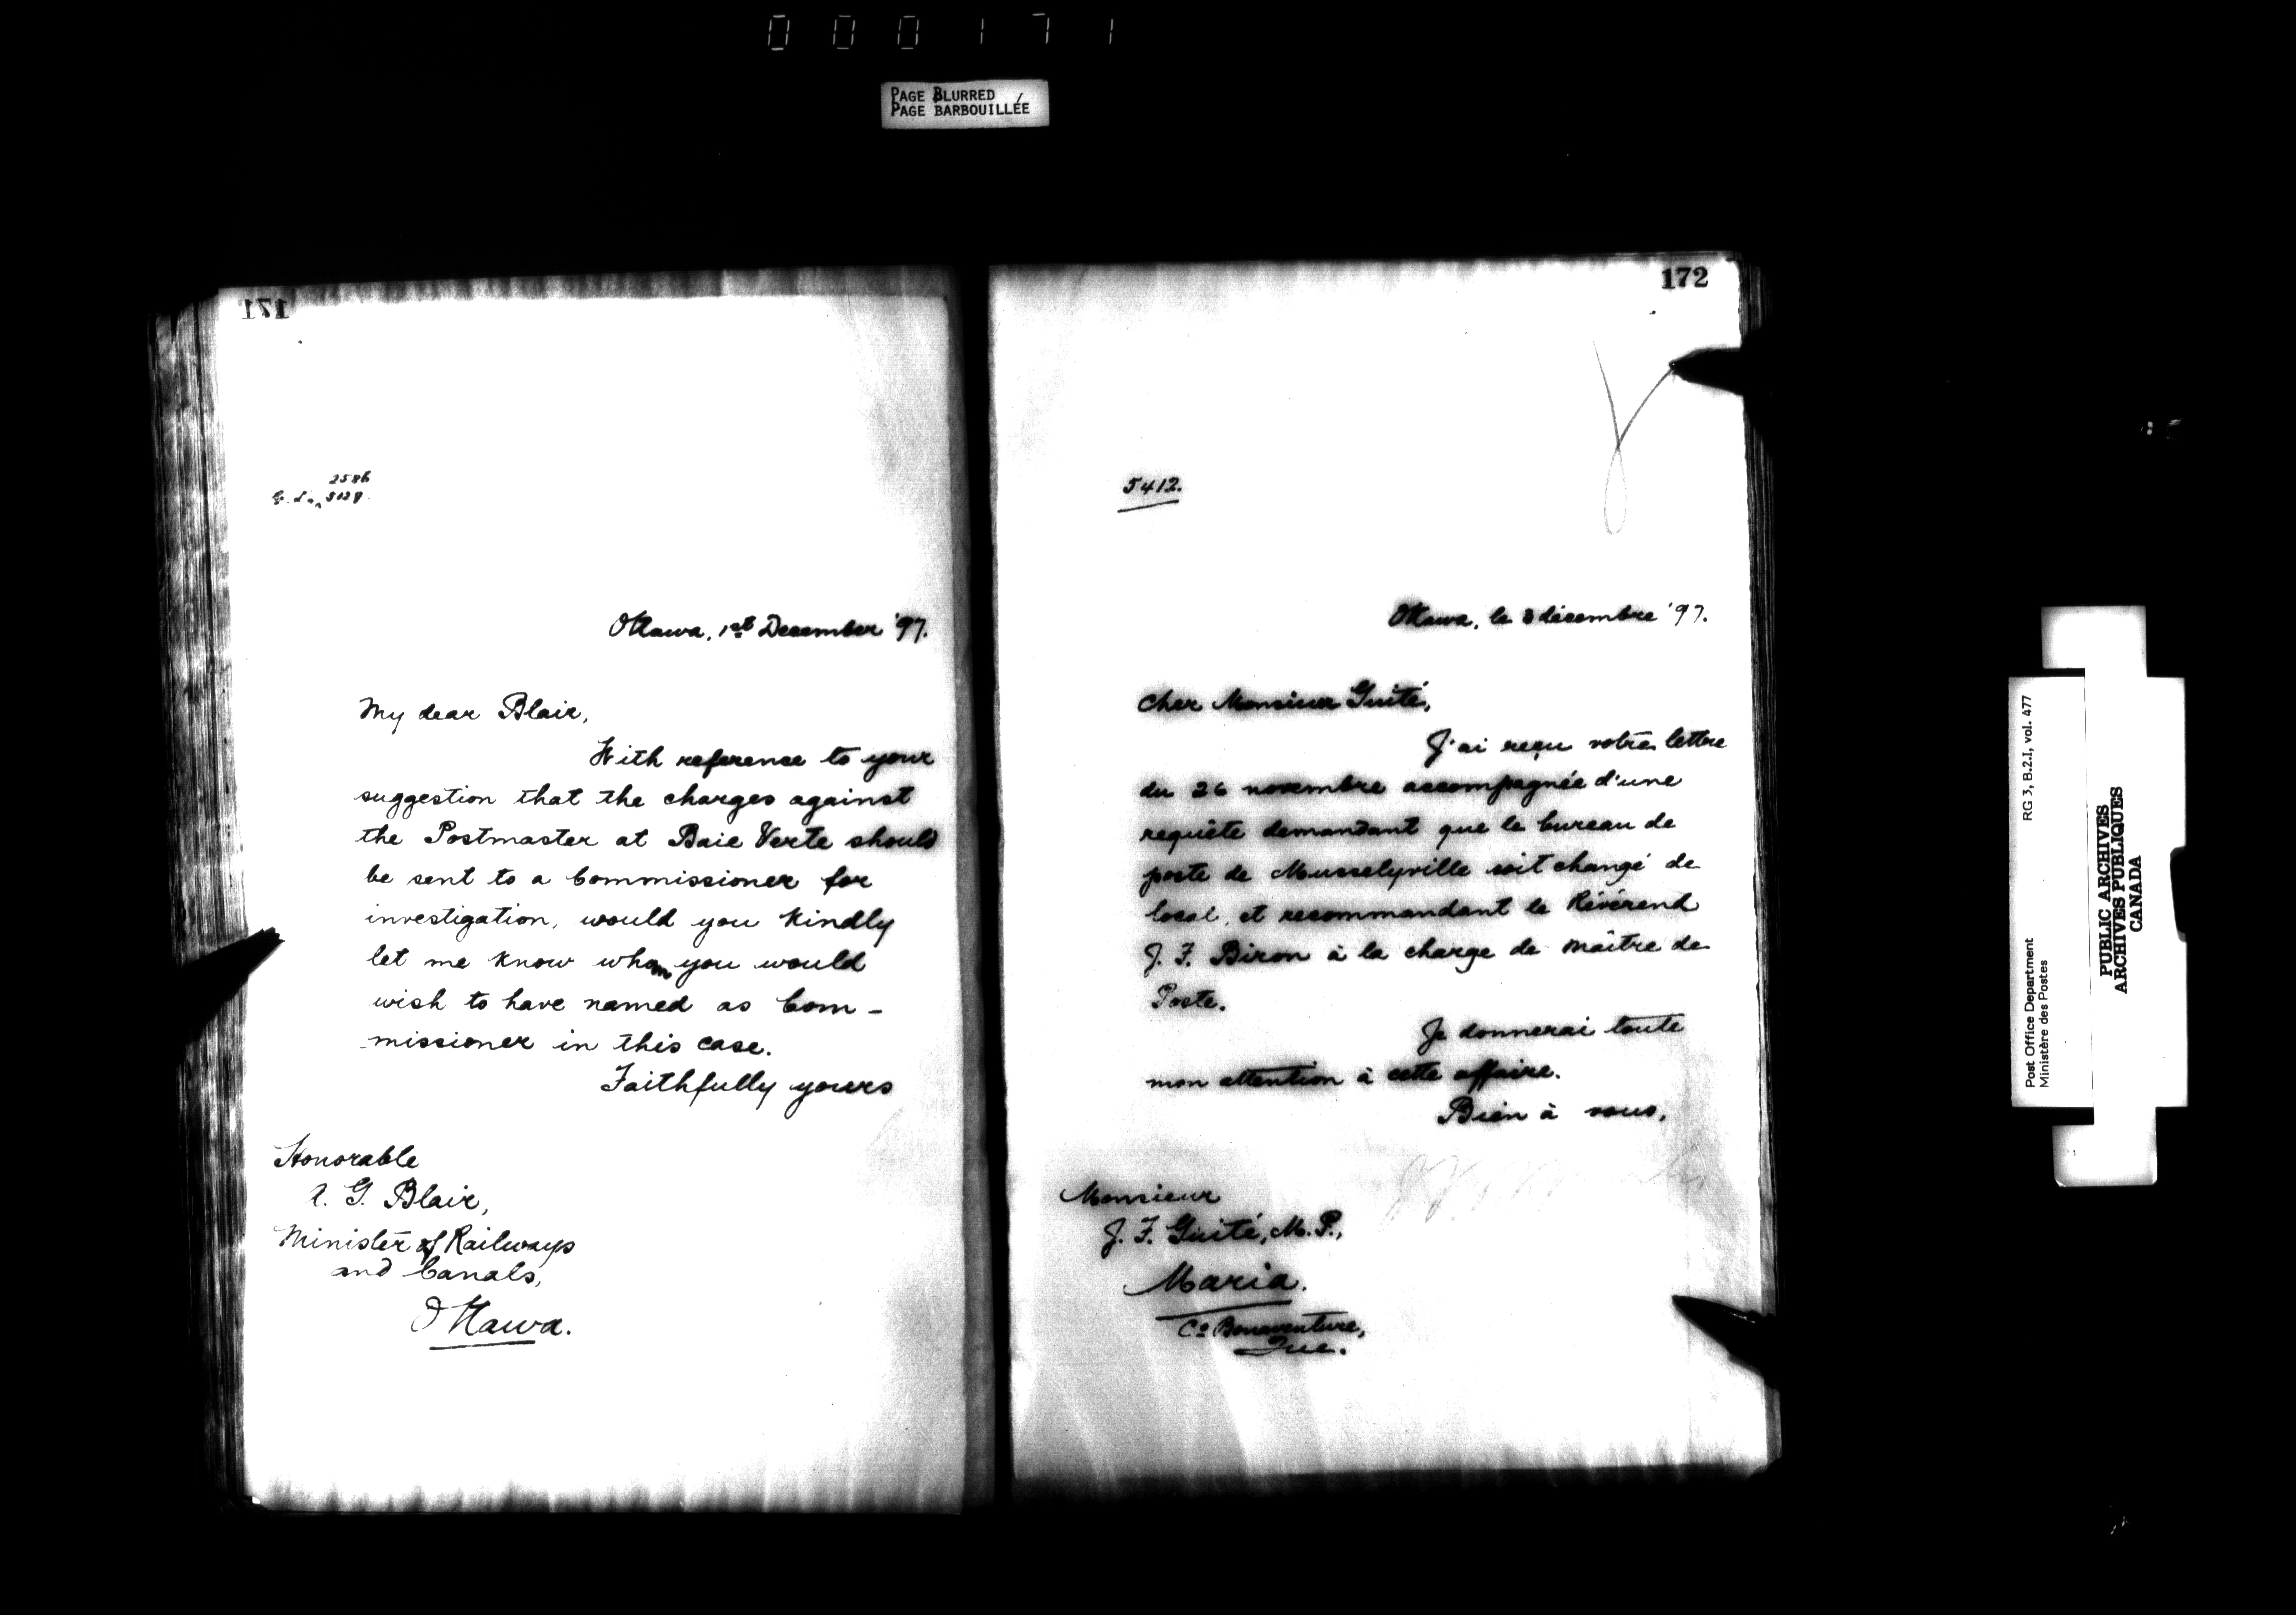 000171
PAGE BLURRED
PAGE BARBOUILLÉE
171
2586
G. L. 5127
Ottawa, 1st December '97.
My dear Blair,
With reference to your
suggestion that the charges against
the Postmaster at Baie Verte should
be sent to a Commissioner for
investigation, would you kindly
let me know whom you would
wish to have named as Com-
missioner in this case.
Faithfully yours
Honorable
A. G. Blair,
Minister of Railways
and Canals,
Ottawa.
172
5412.
Ottawa, le 3 décembre '97.
Cher Monsieur Guité,
J'ai reçu votre lettre
du 26 novembre accompagnée d'une
requête demandant que le bureau de
poste de Musselyville soit changé de
local, et recommandant le Révérend
J. F. Biron à la charge de Maître de
Poste.
Je donnerai toute
mon attention à cette affaire.
Bien à vous,
Monsieur
J. F. Guité, M. P.,
Maria.
Co Bonaventure,
Que.
RG 3, B.2.I, vol. 477
Post Office Department
Ministère des Postes
PUBLIC ARCHIVES
ARCHIVES PUBLIQUES
CANADA